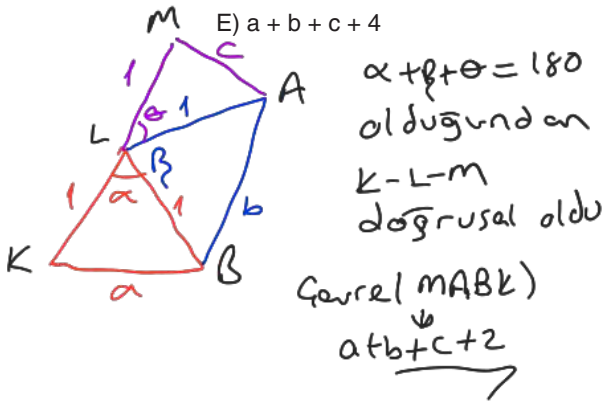 E) a + b + c + 4
M
c
1
A
θ
1
L
β
1
α
1
b
K
B
a
α+β+θ=180
olduğundan
K-L-M
doğrusal oldu
Çevre(MABK)
↓
a+b+c+2